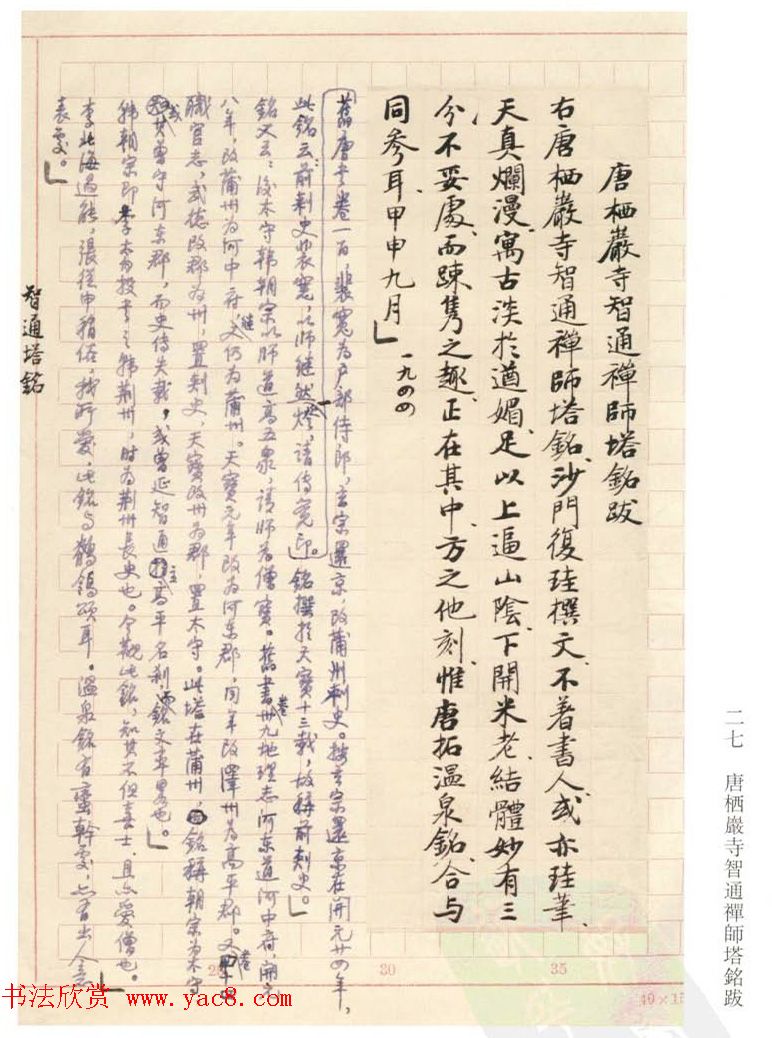 唐栖巖寺智通禪師塔銘跋
右唐栖巖寺智通禪師塔銘、沙門復珪撰文、不著書人、或亦珪筆、
天真爛漫、寓古淡於遒媚、足以上逼山陰、下開米老、結體妙有三
分不妥處、而踈雋之趣、正在其中、方之他刻、惟唐拓溫泉銘、合与
同參耳、甲申九月」
一九四四
舊唐書卷一百,裴寬為戶部侍郎,玄宗還京,改蒲州刺史。按玄宗還京在開元廿四年,
此銘云:前刺史裴寬,以師継然一燈,請傳寬印。銘撰於天寶十三載,故稱前刺史。」
銘又云:後太守韓朝宗以師道高五泉,請師為僧寶。舊書卷卅九地理志河東道河中府,開元
八年,改蒲州為河中府,継又仍為蒲州。天寶元年改為河东郡,同年改澤州為高平郡。又卷
職官志,武德改郡為州,置刺史,天寶改州為郡,置太守。此塔在蒲州,銘稱朝宗為太守
或其曾守河东郡,而史传失載,或曾延智通主高平名刹,而銘文率畧也。」
韓朝宗即李太白投書之韓荆州,時為荆州長史也。今觀此銘,知其不但喜士,且亦愛僧也。
李北海過熊,張從申稍俗,我所愛,此銘与鶺鴒頌耳。溫泉銘有蛮幹處,亦有出人意
表處。」
智通塔銘
二七 唐栖巖寺智通禪師塔銘跋
25
30
35
40×15
书法欣赏 www.yac8.com